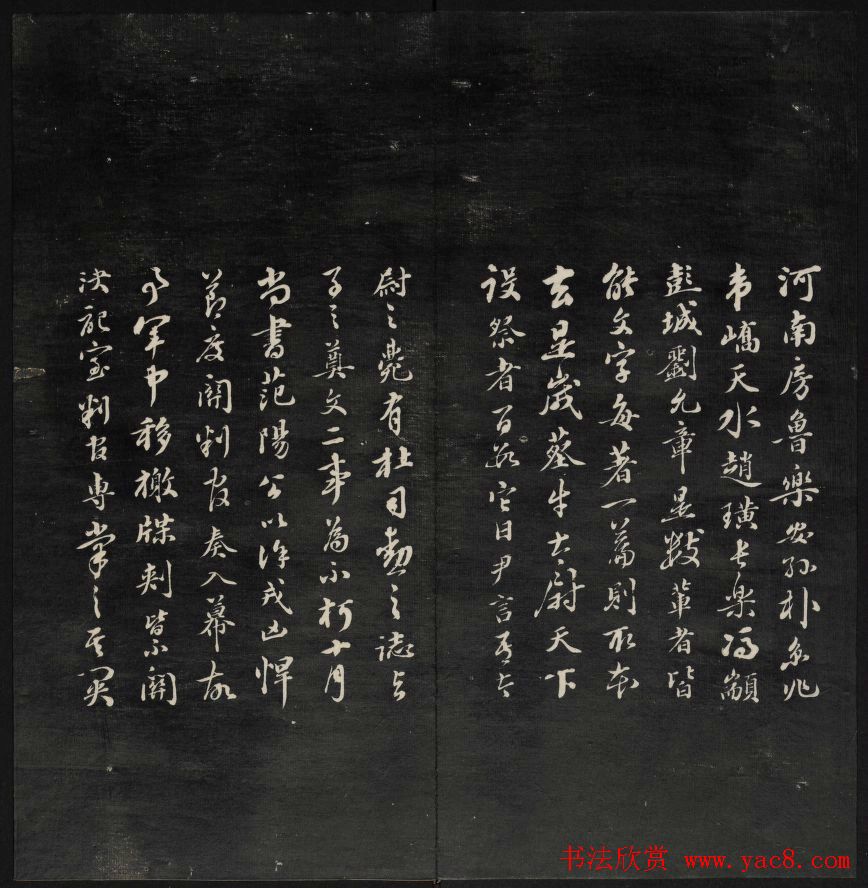 河南房魯樂安孫朴京兆
韋嶠天水趙璜長樂馮顓
彭城劉允章是數輩者皆
能文字每著一篇則取本
去是歲葬牛太尉天下
設祭者百數它日尹言吾太
尉之薨有杜司勳之誌与
子之奠文二事為不朽十月
尚書范陽公以徐戎凶悍
節度闕判官奏入幕故
事軍中移檄牒刺皆不關
決記室判官專掌之其關
书法欣赏 www.yac8.com